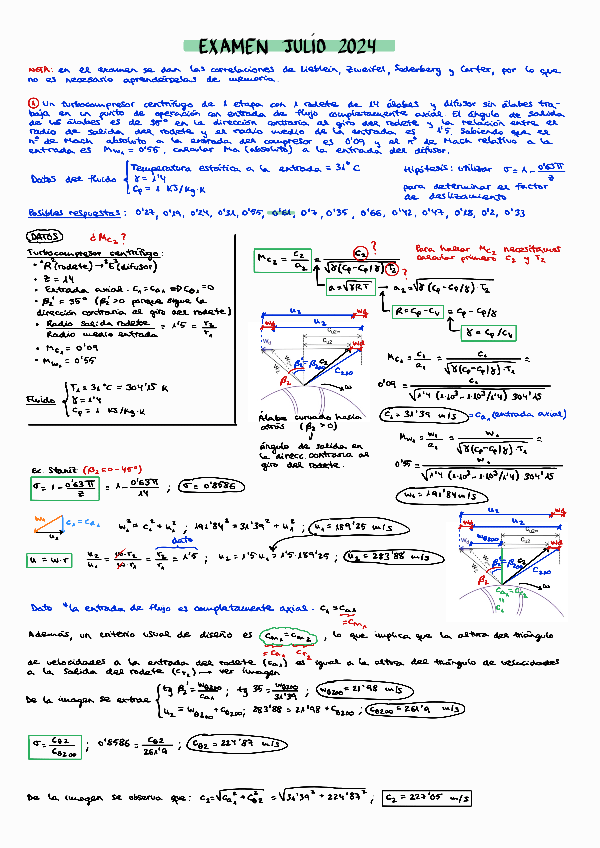 EXAMEN JULIO 2024
NOTA: en el examen se dan las correlaciones de Lieblein, Zweifel, Soderberg y Carter, por lo que
no es necesario aprendérselas de memoria.
① Un turbocompresor centrífugo de 1 etapa con 1 rodete de 14 álabes y difusor sin álabes tra-
baja en un punto de operación con entrada de flujo completamente axial. El ángulo de salida
de los álabes es de 35° en la dirección contraria al giro del rodete y la relación entre el
radio de salida del rodete y el radio medio de la entrada es 1'5. Sabiendo que el
nº de Mach absoluto a la entrada del compresor es 0'09 y el nº de Mach relativo a la
entrada es Mw₁ = 0'55, calcular Ma (absoluto) a la entrada del difusor.
Datos del fluido { Temperatura estática a la entrada = 31°C
γ = 1'4
Cp = 1 KJ/Kg·K
Hipótesis: utilizar σ = 1 - 0'63π/z
para determinar el factor
de deslizamiento
Posibles respuestas: 0'27, 0'19, 0'24, 0'31, 0'55, 0'61, 0'7, 0'35, 0'66, 0'42, 0'47, 0'18, 0'2, 0'33
DATOS ¿Mc₂?
Turbocompresor centrífugo:
• 1 R (rodete) → 1 E (difusor)
• Z = 14
• Entrada axial - C₁ = Ca₁ ⇒ Cθ₁ = 0
• β₂' = 35° (β₂' > 0 porque sigue la
dirección contraria al giro del rodete)
• Radio salida rodete / Radio medio entrada = 1'5 = r₂/r₁
• Mc₁ = 0'09
• Mw₁ = 0'55
Fluido { T₁ = 31°C = 304'15 K
γ = 1'4
Cp = 1 KJ/Kg·K
Mc₂ = c₂/a₂ = c₂/√(γ(Cp - Cp/γ) T₂) ? ?
a = √(γRT) → a₂ = √(γ(Cp - Cp/γ) T₂)
R = Cp - Cv = Cp - Cp/γ
γ = Cp/Cv
Para hallar Mc₂ necesitamos
calcular primero C₂ y T₂
Álabe curvado hacia
atrás (β₂ > 0)
ángulo de salida en
la direcc. contraria al
giro del rodete.
Mc₁ = c₁/a₁ = c₁/√(γ(Cp - Cp/γ)·T₁) =
0'09 = c₁/√(1'4 (1·10³ - 1·10³/1'4) 304'15)
C₁ = 31'39 m/s = Ca₁ (entrada axial)
Mw₁ = w₁/a₁ = w₁/√(γ(Cp - Cp/γ) T₁) =
0'55 = w₁/√(1'4 (1·10³ - 1·10³/1'4) 304'15)
w₁ = 191'84 m/s
Ec Stanitz (β₂ = 0 - 45°)
σ = 1 - 0'63π/z = 1 - 0'63π/14 ; σ = 0'8586
w₁ c₁ = ca₁ u₁
w₁² = c₁² + u₁² ; 191'84² = 31'39² + u₁² ; u₁ = 189'25 m/s
dato
u = w·r u₂/u₁ = w·r₂/w·r₁ = r₂/r₁ = 1'5 ; u₂ = 1'5·u₁ = 1'5·189'25 ; u₂ = 283'88 m/s
Dato "la entrada de flujo es completamente axial - C₁ = Ca₁
= Cm₁
Además, un criterio usual de diseño es Cm₁ = Cm₂, lo que implica que la altura del triángulo
= Ca₁ Cr₂
de velocidades a la entrada del rodete (Ca₁) es igual a la altura del triángulo de velocidades
a la salida del rodete (Cr₂) → ver imagen
De la imagen se extrae { tg β₂' = wθ2∞/ca₁ ; tg 35 = wθ2∞/31'39 ; wθ2∞ = 21'98 m/s
u₂ = wθ2∞ + cθ2∞ ; 283'88 = 21'98 + cθ2∞ ; cθ2∞ = 261'9 m/s
σ = cθ2/cθ2∞ ; 0'8586 = cθ2/261'9 ; cθ2 = 224'87 m/s
De la imagen se observa que: c₂ = √(ca₁² + cθ2²) = √(31'39² + 224'87²) ; c₂ = 227'05 m/s